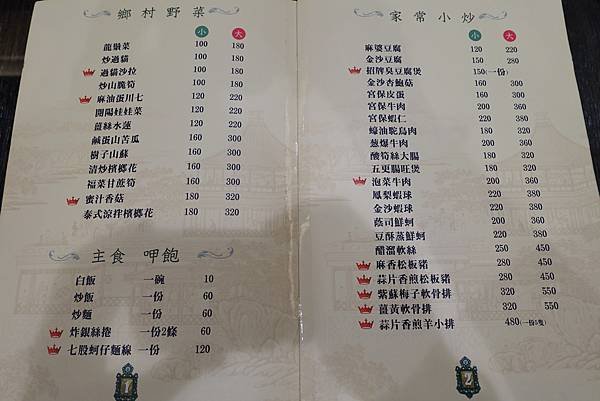 鄉村野菜
小 大
龍鬚菜 100 180
炒過貓 100 180
過貓沙拉 100 180
炒山脆筍 100 180
麻油蛋川七 120 220
開陽娃娃菜 120 220
薑絲水蓮 120 220
鹹蛋山苦瓜 160 300
樹子山蘇 160 300
清炒檳榔花 160 300
福菜甘蔗筍 160 300
蜜汁香菇 180 320
泰式涼拌檳榔花 180 320
主食 呷飽
白飯 一碗 10
炒飯 一份 60
炒麵 一份 60
炸銀絲捲 一份2條 60
七股蚵仔麵線 一份 120
1
家常小炒
小 大
麻婆豆腐 120 220
金沙豆腐 150 280
招牌臭豆腐煲 150(一份)
金沙杏鮑菇 160 300
宮保皮蛋 160 300
宮保牛肉 200 360
宮保蝦仁 220 380
蠔油鴕鳥肉 180 320
蔥爆牛肉 200 360
酸筍絲大腸 180 320
五更腸旺煲 180 320
泡菜牛肉 200 360
鳳梨蝦球 200 360
金沙蝦球 200 360
蔭司鮮蚵 200 360
豆酥蒸鮮蚵 220 380
醋溜軟絲 250 450
麻香松板豬 250 450
蒜片香煎松板豬 250 450
紫蘇梅子軟骨排 320 550
薑黃軟骨排 320 550
蒜片香煎羊小排 480(一份5隻)
2